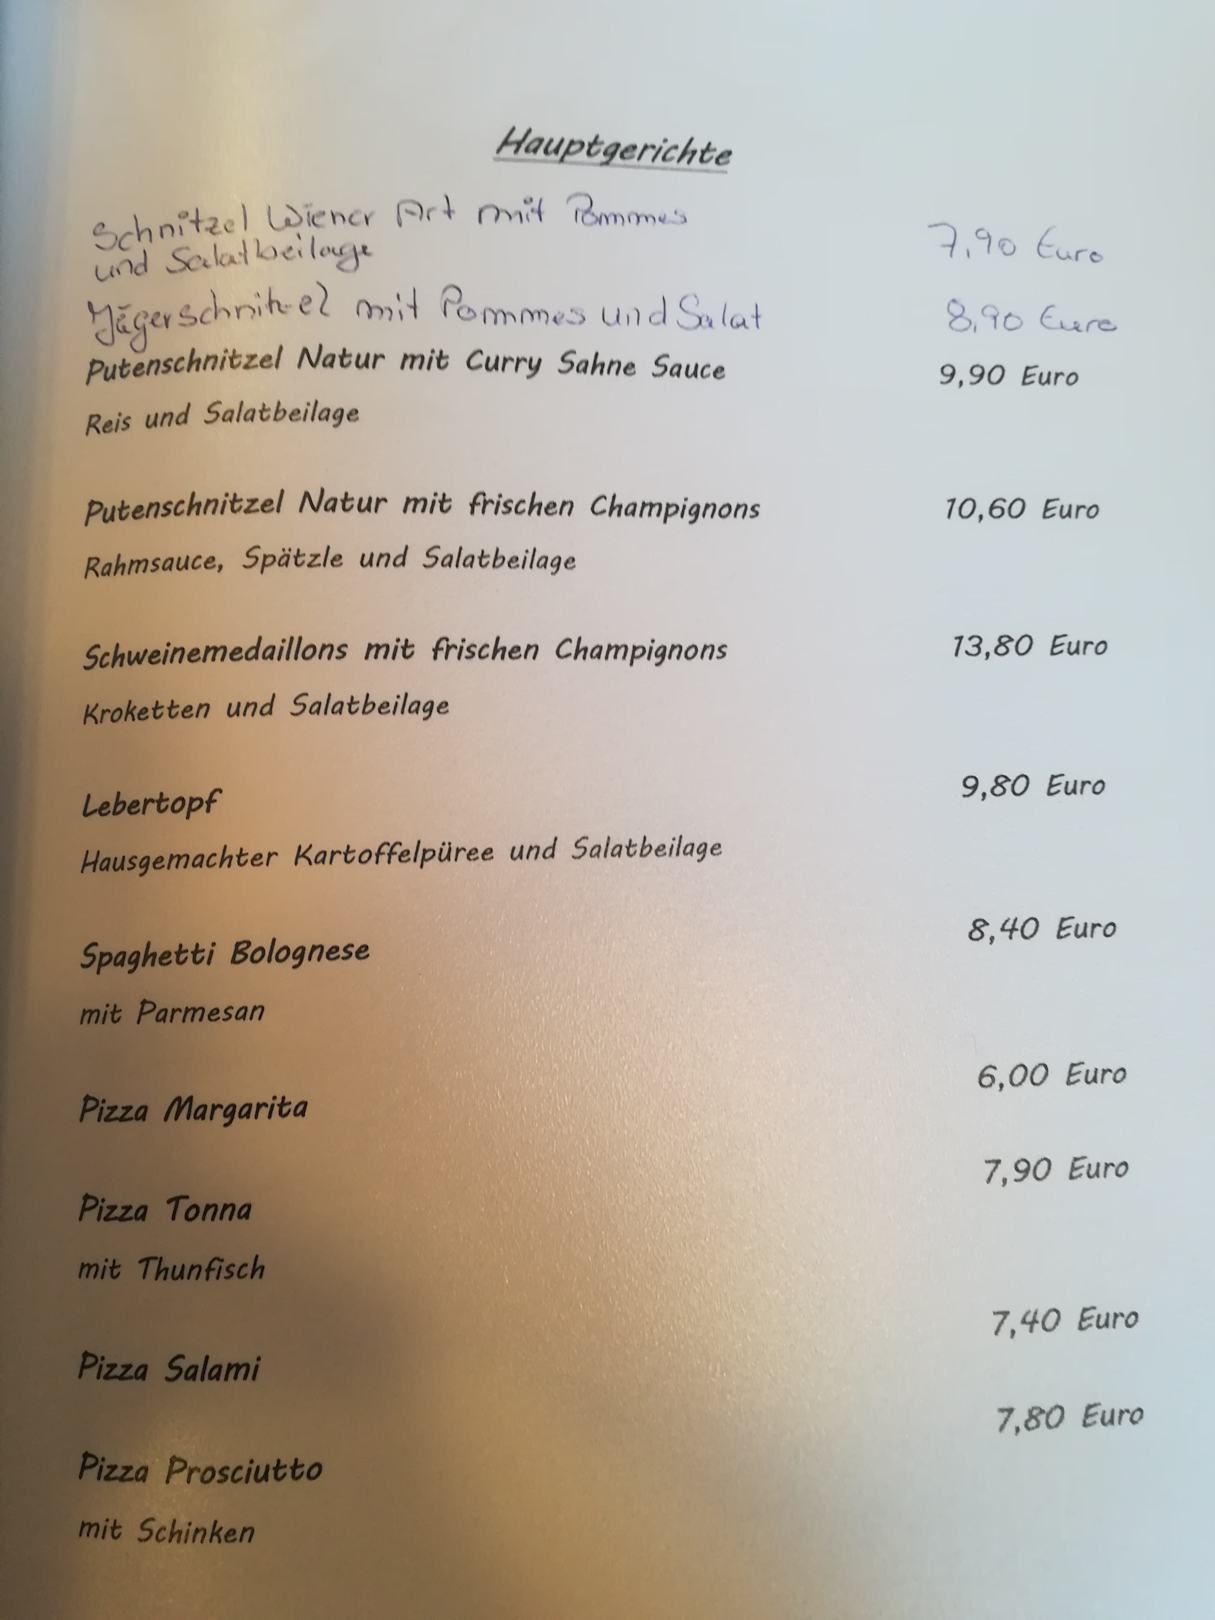 Hauptgerichte
Schnitzel Wiener Art mit Pommes
und Salatbeilage 7,90 Euro
Jägerschnitzel mit Pommes und Salat 8,90 Euro
Putenschnitzel Natur mit Curry Sahne Sauce 9,90 Euro
Reis und Salatbeilage
Putenschnitzel Natur mit frischen Champignons 10,60 Euro
Rahmsauce, Spätzle und Salatbeilage
Schweinemedaillons mit frischen Champignons 13,80 Euro
Kroketten und Salatbeilage
Lebertopf 9,80 Euro
Hausgemachter Kartoffelpüree und Salatbeilage
Spaghetti Bolognese 8,40 Euro
mit Parmesan
Pizza Margarita 6,00 Euro
Pizza Tonna 7,90 Euro
mit Thunfisch
Pizza Salami 7,40 Euro
Pizza Prosciutto 7,80 Euro
mit Schinken